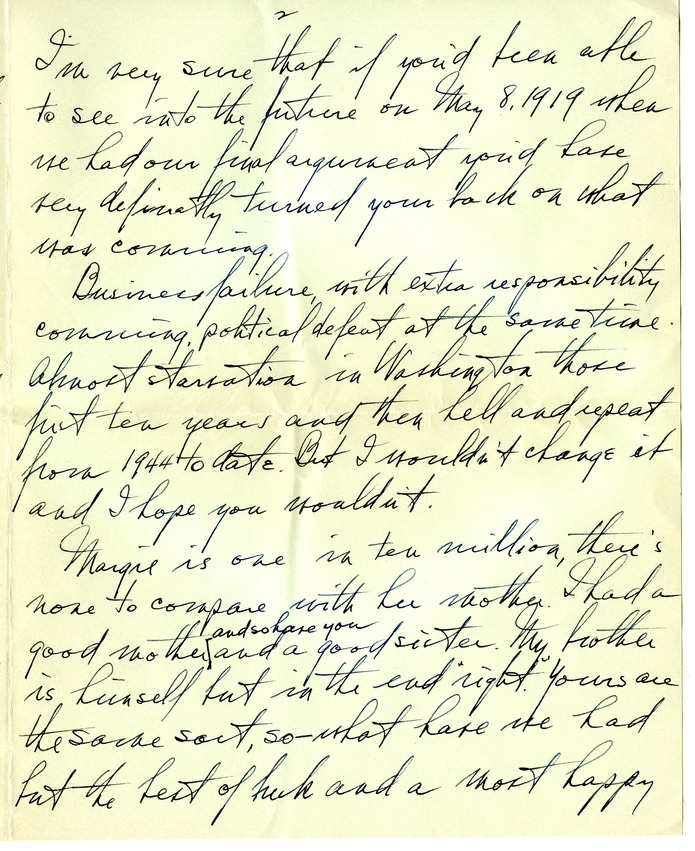 2
I'm very sure that if you'd been able
to see into the future on May 8, 1919 when
we had our final argument you'd have
very definatly turned your back on what
was comming.
Business failure, with extra responsibility
comming, political defeat at the same time.
Almost starvation in Washington those
first ten years and then hell and repeat
from 1944 to date. But I wouldn't change it
and I hope you wouldn't.
Margie is one in ten million, there's
none to compare with her mother. I had a
and so have you
good mother and a good sister. My brother
is himself but in the end "right." Yours are
the same sort, so—what have we had
but the best of luck and a most happy